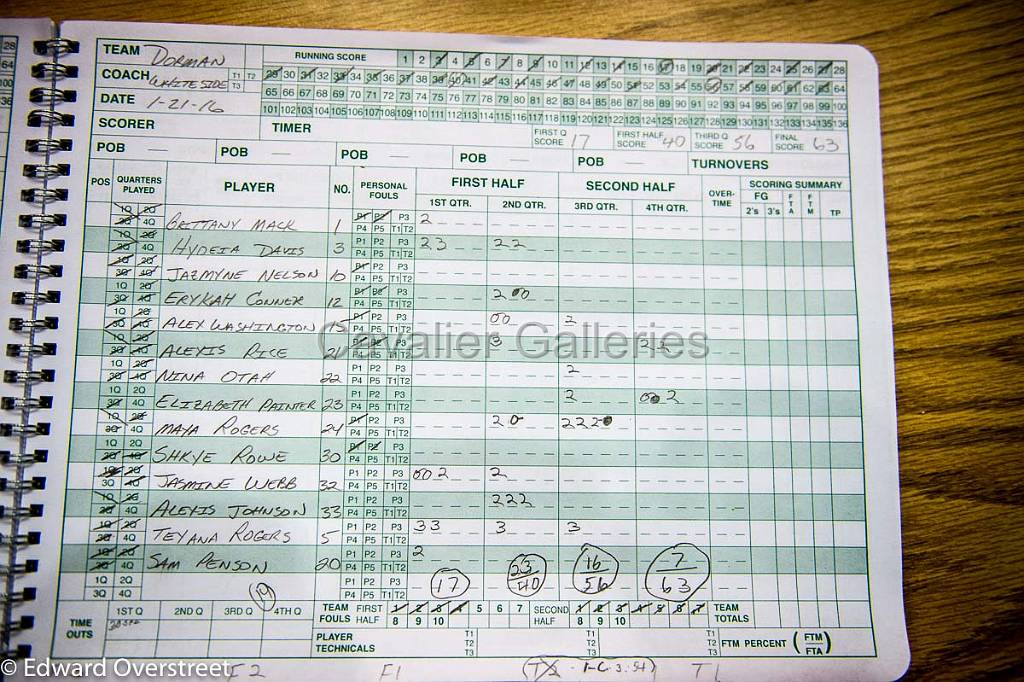 TEAM DORMAN
RUNNING SCORE 1 2 3 4 5 6 7 8 9 10 11 12 13 14 15 16 17 18 19 20 21 22 23 24 25 26 27 28
COACH WHITESIDE T1 T2 T3
29 30 31 32 33 34 35 36 37 38 39 40 41 42 43 44 45 46 47 48 49 50 51 52 53 54 55 56 57 58 59 60 61 62 63 64
65 66 67 68 69 70 71 72 73 74 75 76 77 78 79 80 81 82 83 84 85 86 87 88 89 90 91 92 93 94 95 96 97 98 99 100
DATE 1-21-16
101 102 103 104 105 106 107 108 109 110 111 112 113 114 115 116 117 118 119 120 121 122 123 124 125 126 127 128 129 130 131 132 133 134 135 136
SCORER TIMER FIRST Q SCORE 17 FIRST HALF SCORE 40 THIRD Q SCORE 56 FINAL SCORE 63
POB — POB — POB — POB — POB — TURNOVERS
POS QUARTERS PLAYED PLAYER NO. PERSONAL FOULS FIRST HALF SECOND HALF OVER-TIME SCORING SUMMARY
1ST QTR. 2ND QTR. 3RD QTR. 4TH QTR. FG 2's 3's FTA FTM TP
1Q 2Q 3Q 4Q BRITTANY MACK 1 P1 P2 P3 P4 P5 T1 T2 2
1Q 2Q 3Q 4Q HYDEIA DAVIS 3 P1 P2 P3 P4 P5 T1 T2 23 22
1Q 2Q 3Q 4Q JAZMYNE NELSON 10 P1 P2 P3 P4 P5 T1 T2
1Q 2Q 3Q 4Q ERYKAH CONNER 12 P1 P2 P3 P4 P5 T1 T2 200
1Q 2Q 3Q 4Q ALEX WASHINGTON 15 P1 P2 P3 P4 P5 T1 T2 00 2
1Q 2Q 3Q 4Q ALEXIS RICE 21 P1 P2 P3 P4 P5 T1 T2 3 22
1Q 2Q 3Q 4Q NINA OTAH 22 P1 P2 P3 P4 P5 T1 T2 2
1Q 2Q 3Q 4Q ELIZABETH PAINTER 23 P1 P2 P3 P4 P5 T1 T2 2 00 2
1Q 2Q 3Q 4Q MAYA ROGERS 24 P1 P2 P3 P4 P5 T1 T2 20 2220
1Q 2Q 3Q 4Q SHKYE ROWE 30 P1 P2 P3 P4 P5 T1 T2
1Q 2Q 3Q 4Q JASMINE WEBB 32 P1 P2 P3 P4 P5 T1 T2 00 2 2
1Q 2Q 3Q 4Q ALEXIS JOHNSON 33 P1 P2 P3 P4 P5 T1 T2 222
1Q 2Q 3Q 4Q TEYANA ROGERS 5 P1 P2 P3 P4 P5 T1 T2 33 3 3
1Q 2Q 3Q 4Q SAM PENSON 20 P1 P2 P3 P4 P5 T1 T2 2
1Q 2Q 3Q 4Q P1 P2 P3 P4 P5 T1 T2 17 23/40 16/56 7/63
TIME OUTS 1ST Q 2ND Q 3RD Q 4TH Q TEAM FOULS FIRST HALF 1 2 3 4 5 6 7 8 9 10 SECOND HALF 1 2 3 4 5 6 7 8 9 10 TEAM TOTALS
PLAYER TECHNICALS T1 T2 T3 T1 T2 T3 T1 T2 T3 FTM PERCENT (FTM/FTA)
F2 F1 T1
Cavalier Galleries
© Edward Overstreet